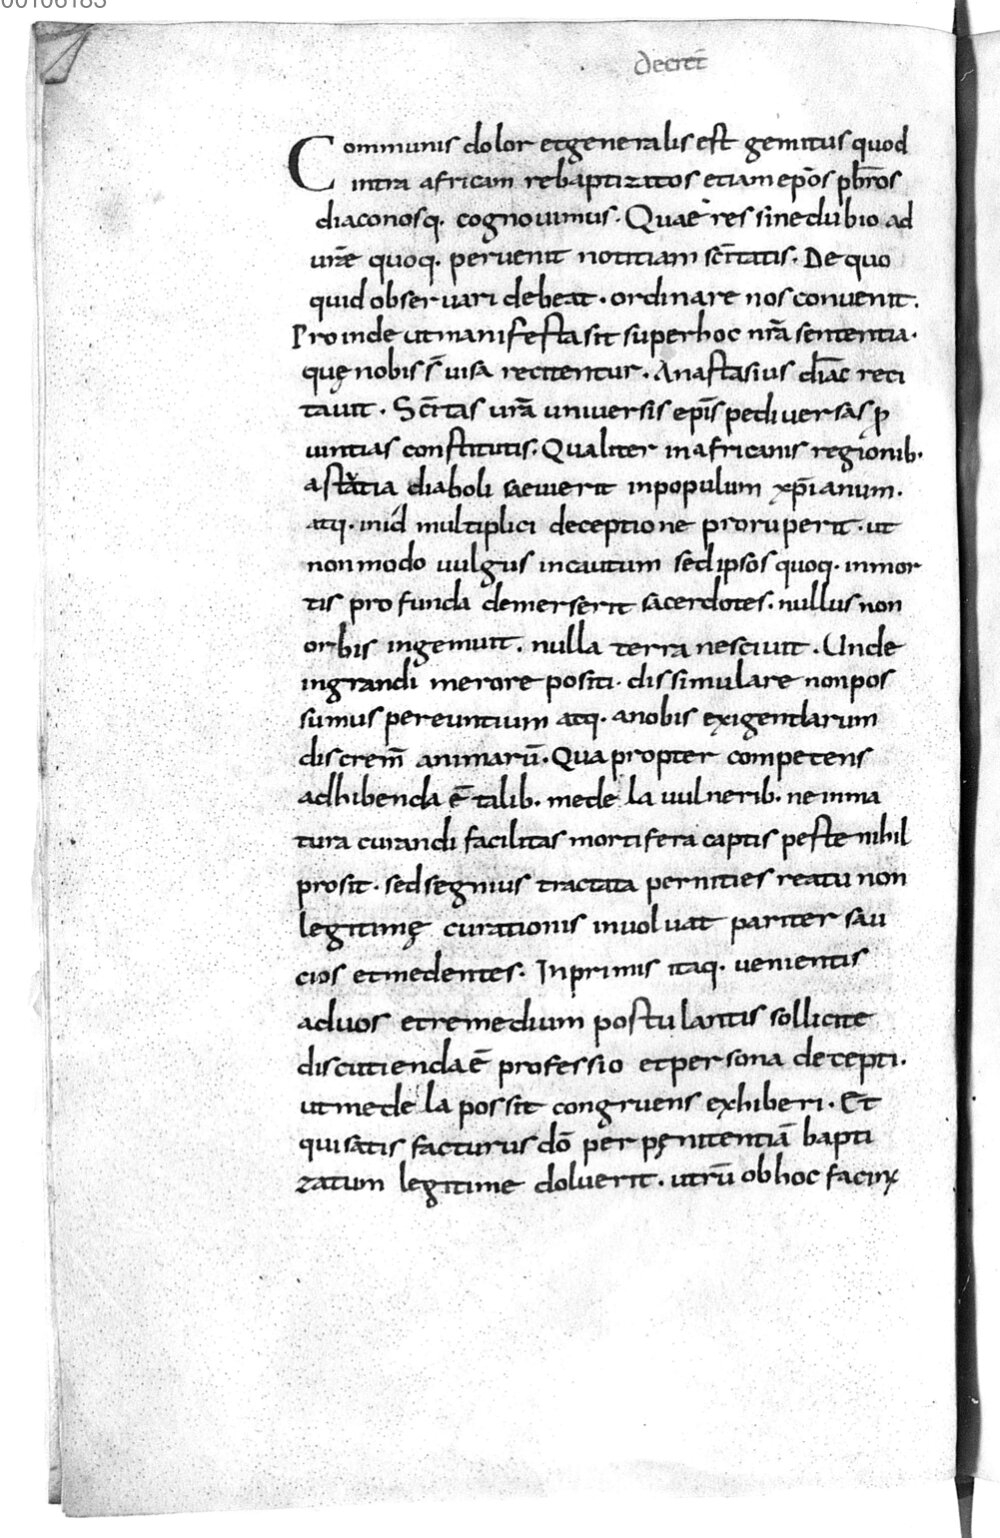 00106183
decret̄
Communis dolor et generalis est gemitus quod
intra africam rebaptizatos etiam ep̄os pb̄ros
diaconosq. cognouimus. Quae res sine dubio ad
ur̄e quoq. peruenit notitiam sc̄itatis. De quo
quid obseruari debeat. ordinare nos conuenit.
Proinde ut manifesta sit super hoc nr̄a sententia.
quę nobis s̄ uisa recitentur. Anastasius diāc reci
tauit. Sc̄itas ur̄a uniuersis ep̄is pe diuersas ꝓ
uintias constitutis. Qualiter in africanis regionib.
astatia diaboli saeuierit in populum xp̄ianum.
atq. in id multiplici deceptione proruperit. ut
non modo uulgus incautum sed ipsos quoq. in mor
tis profunda demerserit sacerdotes. nullus non
orbis ingemuit. nulla terra nesciuit. Unde
in grandi merore positi. dissimulare non pos
sumus pereuntium atq. a nobis exigendarum
discrem̄ animarū. Qua propter competens
adhibenda ē talib. medela uulnerib. ne inma
tura curandi facilitas mortifera captis peste nihil
prosit. sed segnius tractata pernities reatu non
legitimę curationis inuoluat pariter sau
cios et medentes. Inprimis itaq. uenientis
ad uos et remedium postulantis sollicite
discutienda ē professio et persona decepti.
ut medela possit congruens exhiberi. Et
qui satis facturus dō per pęnitentiā bapti
zatum legitime doluerit. utrū ob hoc facinꝰ